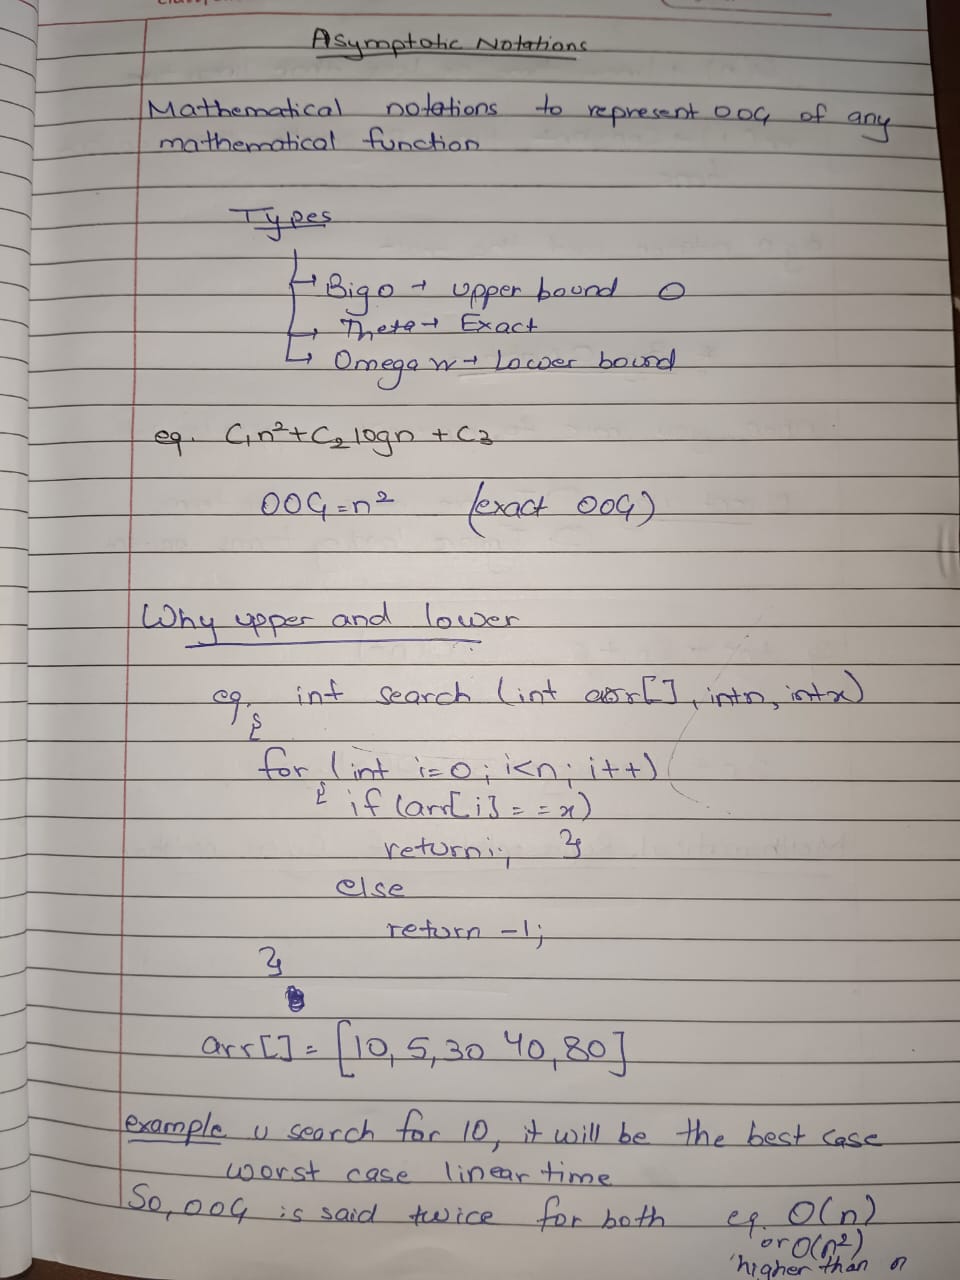 Asymptotic Notations
Mathematical notations to represent OOG of any
mathematical function
Types
Big o → upper bound O
Theta → Exact
Omega w → Lower bound
eg. C₁n² + C₂ logn + C3
OOG = n² (exact OOG)
Why upper and lower
eg. int search (int arr[], int n, int x)
{
for (int i=0; i<n; i++)
{ if (arr[i] == x)
return i; }
else
return -1;
}
arr[] = [10, 5, 30 40, 80]
example u search for 10, it will be the best case
worst case linear time
So, OOG is said twice for both eg. O(n)
or O(n²)
higher than n